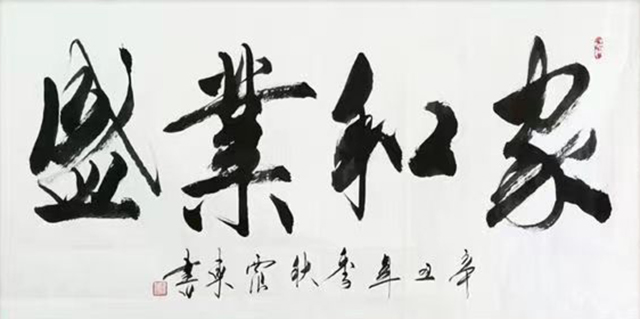 家和業盛
辛丑年季秋霞東書